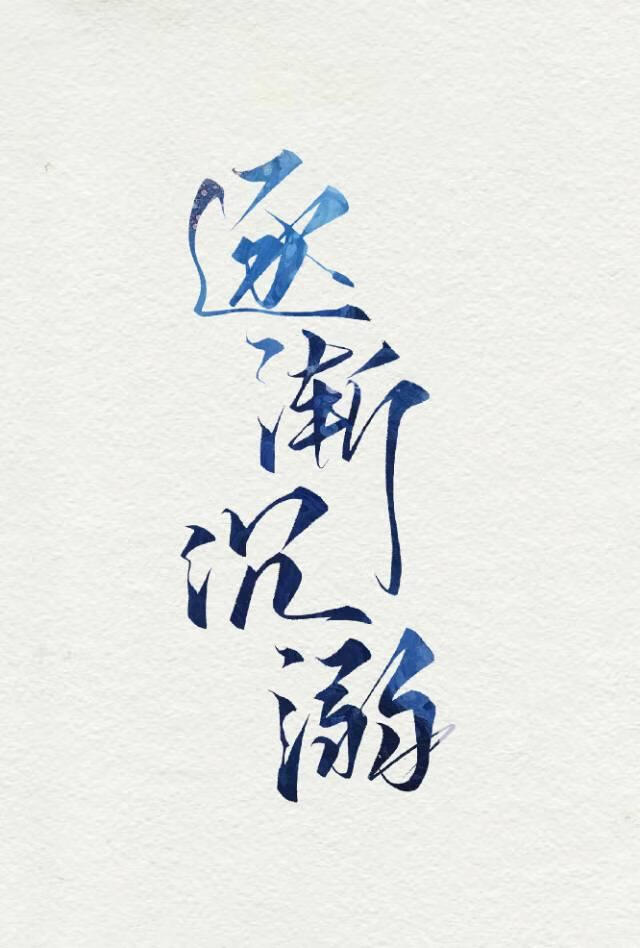 逐渐沉溺